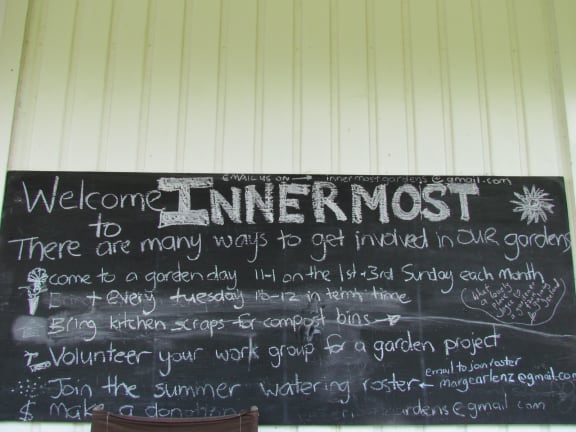 EMAIL US ON → innermostgardens@gmail.com
Welcome to INNERMOST
There are many ways to get involved in OUR gardens
come to a garden day 11-1 on the 1st + 3rd Sunday each month
+ every tuesday 10-12 in term time
Bring kitchen scraps for compost bins →
Volunteer your work group for a garden project
email to join roster
Join the summer watering roster ← margearlenz@gmail.com
$ make a donation gardens@gmail.com